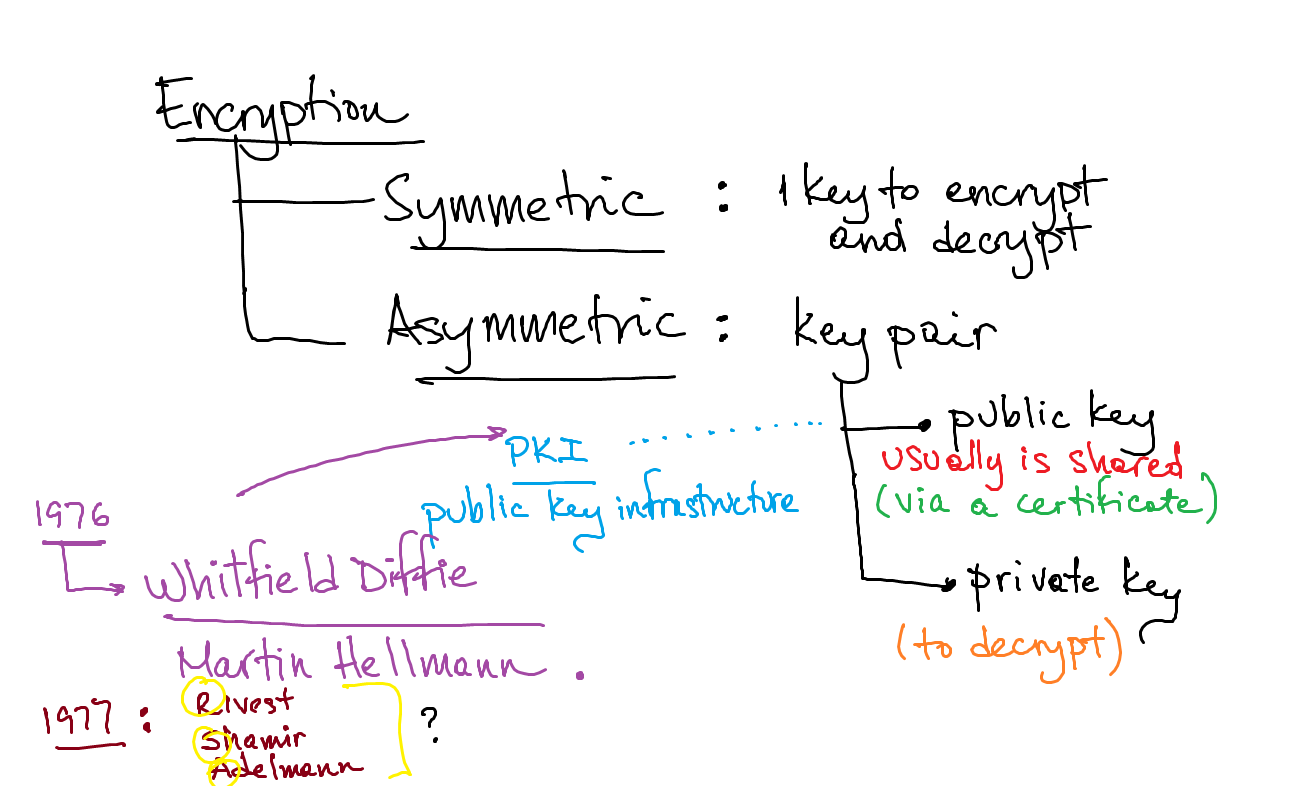 Encryption
Symmetric : 1 key to encrypt
and decrypt
Asymmetric : key pair
public key
usually is shared
(via a certificate)
PKI
public key infrastructure
1976
Whitfield Diffie
Martin Hellmann.
private key
(to decrypt)
1977 : Rivest
Shamir
Adelmann
?